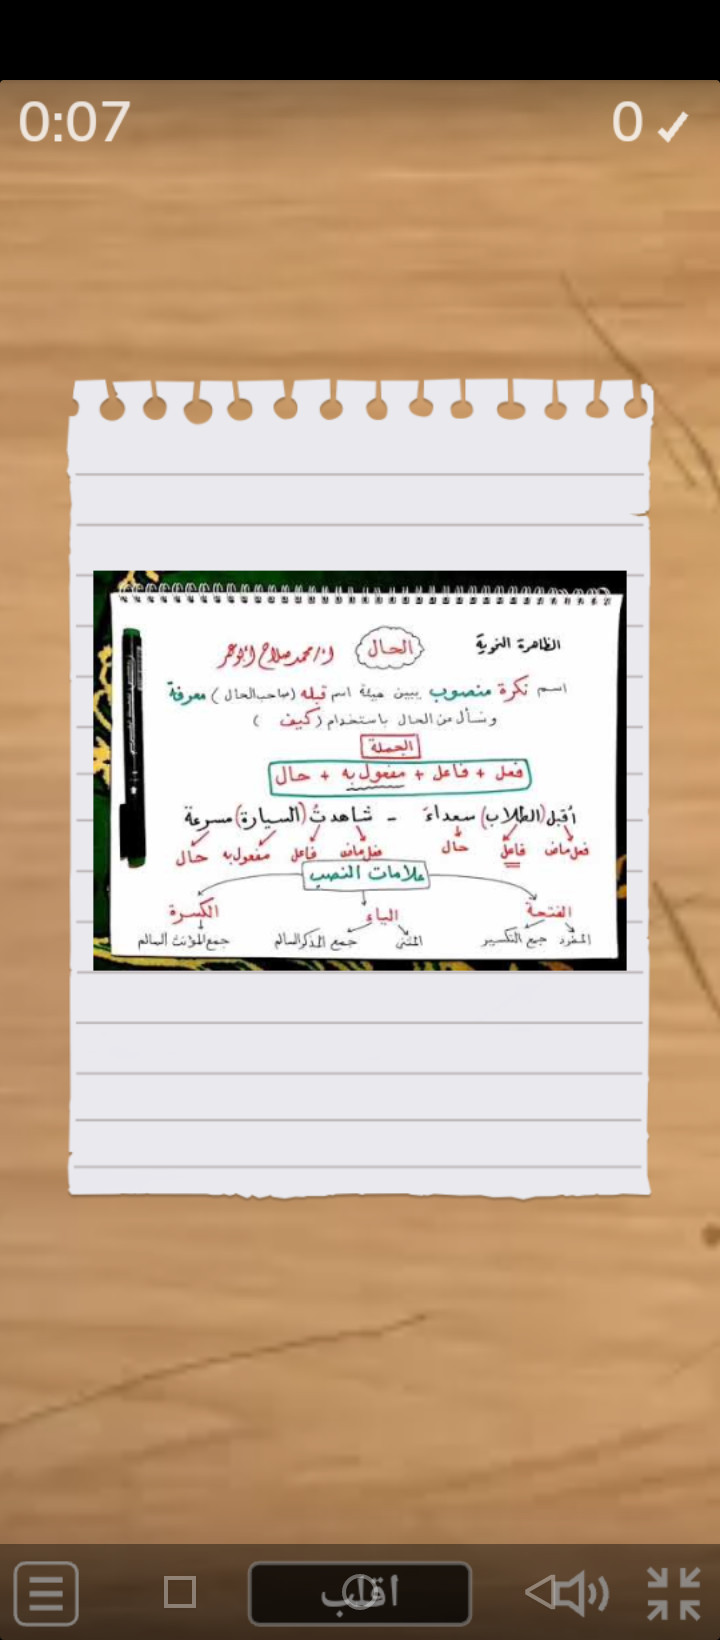 0:07
0
الظاهرة النحوية
الحال
أ/محمد صلاح أبو عمر
اسم نكرة منصوب يبين هيئة اسم قبله (صاحب الحال) معرفة
ونسأل عن الحال باستخدام (كيف)
الجملة
فعل + فاعل + مفعول به + حال
أقبل (الطلاب) سعداءَ - شاهدتُ (السيارة) مسرعة
فعل ماض فاعل حال فعل ماض فاعل مفعول به حال
علامات النصب
الفتحة الياء الكسرة
المفرد جمع التكسير المثنى جمع المذكر السالم جمع المؤنث السالم
اقلب